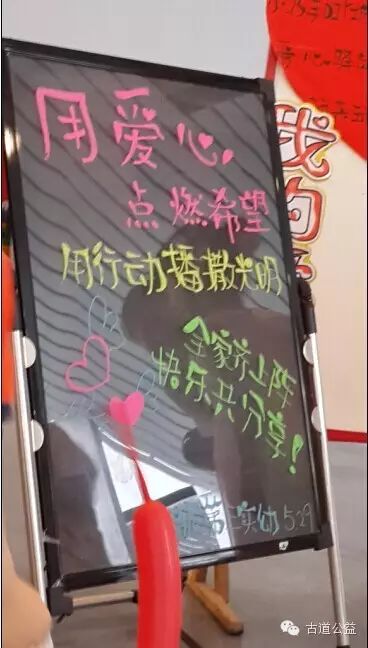 用爱心,
点燃希望
用行动播撒光明
全家齐上阵
快乐共分享!
第三实幼 5.29
我的
古道公益